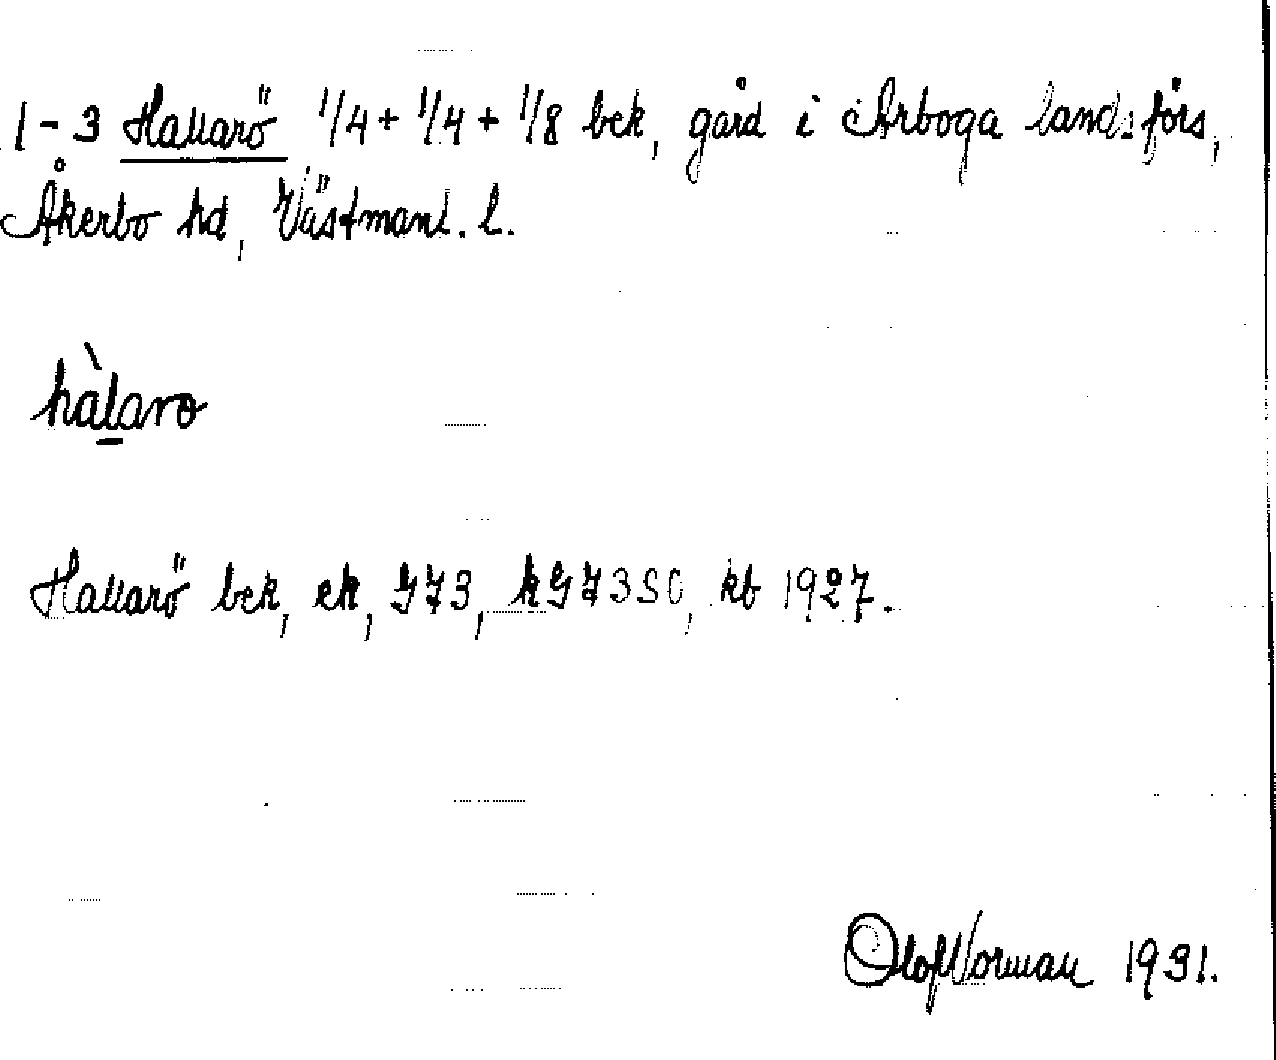 1-3 Hallarö 1/4 + 1/4 + 1/8 bek, gård i Arboga landsförs,
Åkerbo hd, Västmanl. l.
hàlaro
Hallarö bek, ek, GJ3, kGJ350, kb 1927.
Olof Norman 1931.